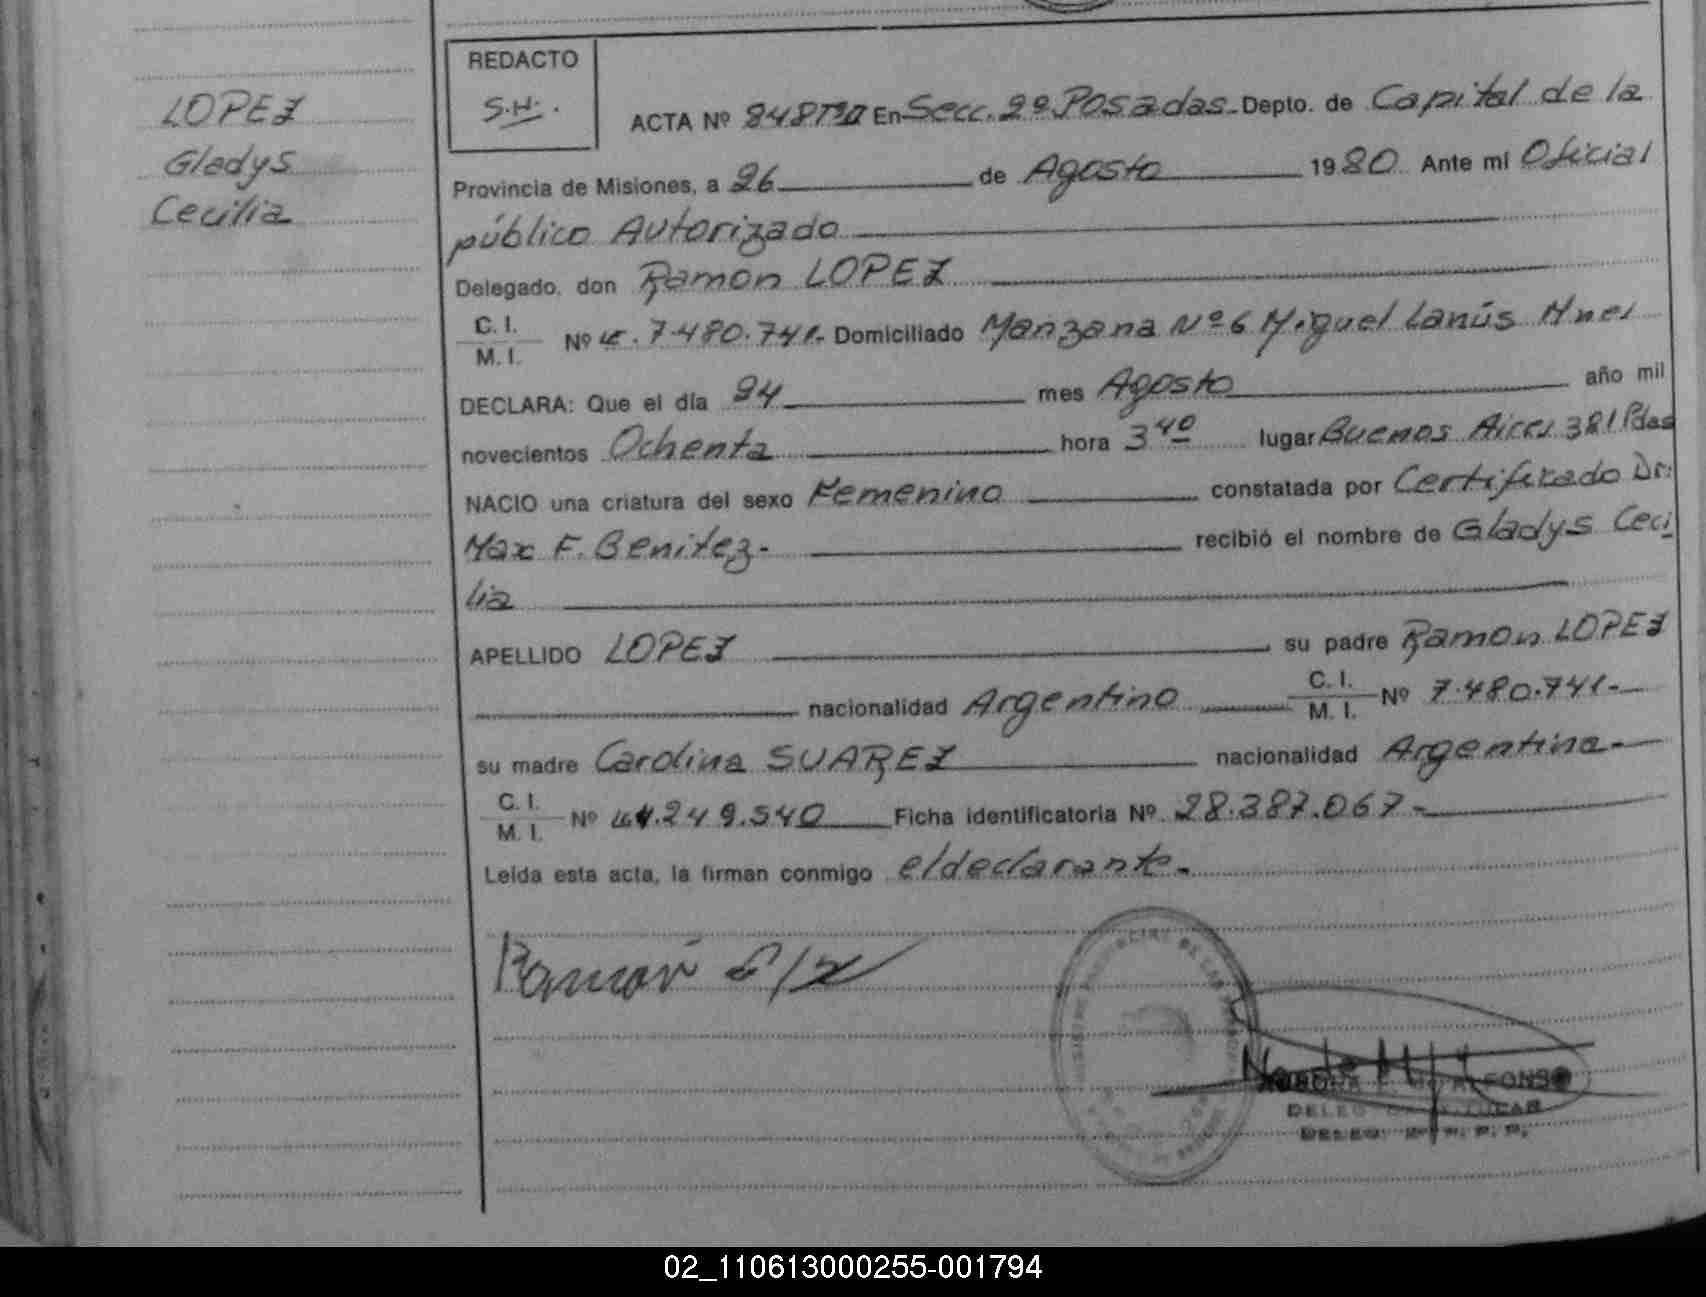 LOPEZ
Gladys
Cecilia
REDACTO
S.H.
ACTA Nº 848 En Secc. 2º Posadas Depto. de Capital de la
Provincia de Misiones, a 26 de Agosto 1980 Ante mi Oficial
público Autorizado
Delegado, don Ramon LOPEZ
C. I.
M. I.
Nº 7.480.741.- Domiciliado Manzana Nº 6 Miguel Lanús Mnes
DECLARA: Que el día 24 mes Agosto año mil
novecientos Ochenta hora 3 40 lugar Buenos Aires 381 Pdas
NACIO una criatura del sexo Femenino constatada por Certificado Dr.
Max F. Benitez.- recibió el nombre de Gladys Ceci
lia
APELLIDO LOPEZ su padre Ramon LOPEZ
nacionalidad Argentino C. I. M. I. Nº 7.480.741.-
su madre Carolina SUAREZ nacionalidad Argentina.-
C. I.
M. I.
Nº 249.540 Ficha identificatoria Nº 28.387.067.-
Leída esta acta, la firman conmigo el declarante.-
Ramón
DE LAS
ALFONSO
02_110613000255-001794